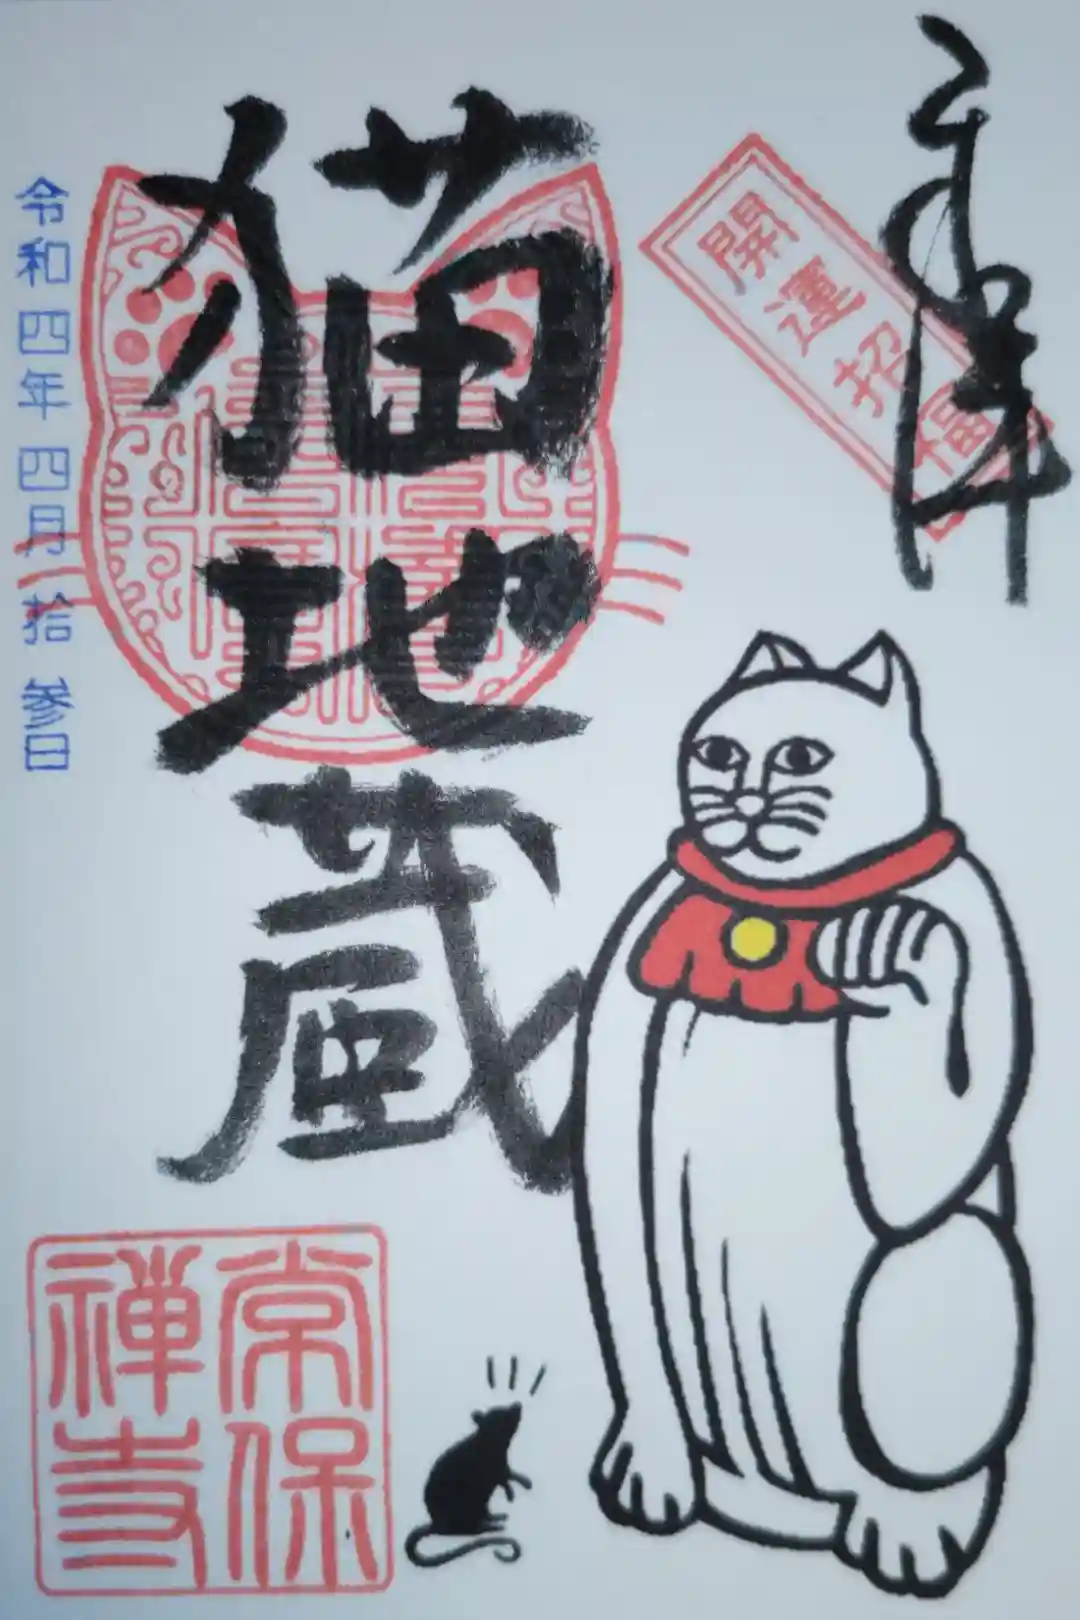 奉拝
開運招福
猫地蔵
令和四年四月拾参日
常保
禅寺